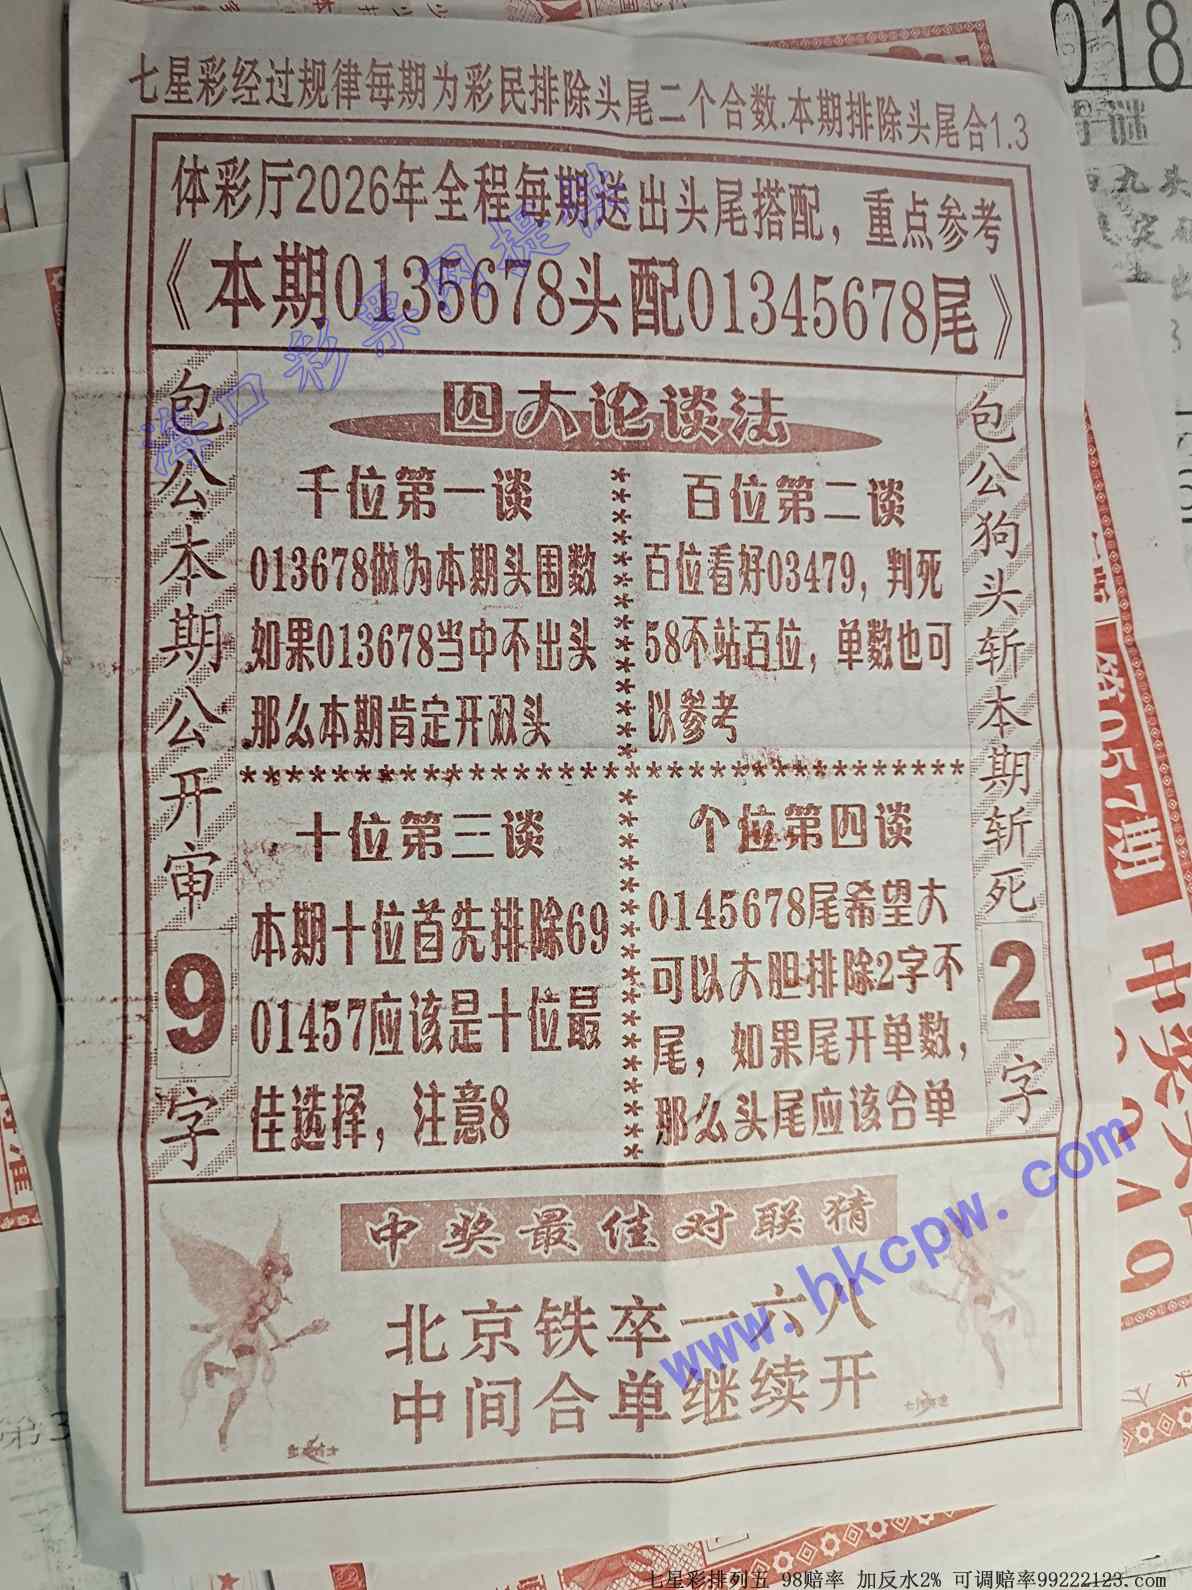 七星彩经过规律每期为彩民排除头尾二个合数.本期排除头尾合1.3
体彩厅2026年全程每期送出头尾搭配，重点参考
《本期0135678头配01345678尾》
包公本期公开审9字
四大论谈法
千位第一谈
013678做为本期头围数
如果013678当中不出头
那么本期肯定开双头
百位第二谈
百位看好03479，判死
58不站百位，单数也可
以参考
十位第三谈
本期十位首先排除69
01457应该是十位最
佳选择，注意8
个位第四谈
0145678尾希望大
可以大胆排除2字不
尾，如果尾开单数，
那么头尾应该合单
包公狗头斩本期斩死2字
中奖最佳对联猜
北京铁卒一六八
中间合单继续开
海口彩票网提供
www.hkcpw.com
018
第057期
七星彩排列五 98赔率 加反水2% 可调赔率99222123.com